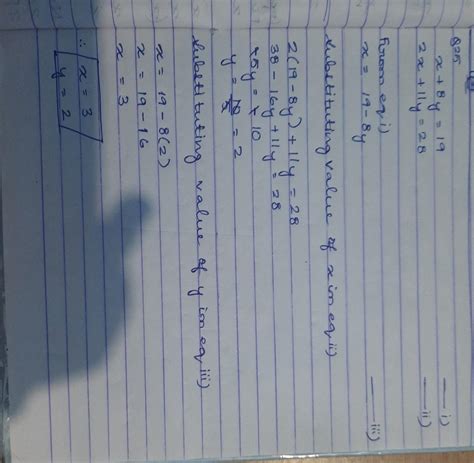 Q25
x + 8y = 19 —— i)
2x + 11y = 28 —— ii)
From eq. i)
x = 19 - 8y —— iii)
Substituting value of x in eq. ii)
2(19 - 8y) + 11y = 28
38 - 16y + 11y = 28
+5y = +10
y = 10/5 = 2
Substituting value of y in eq. iii)
x = 19 - 8(2)
x = 19 - 16
x = 3
∴ x = 3
y = 2